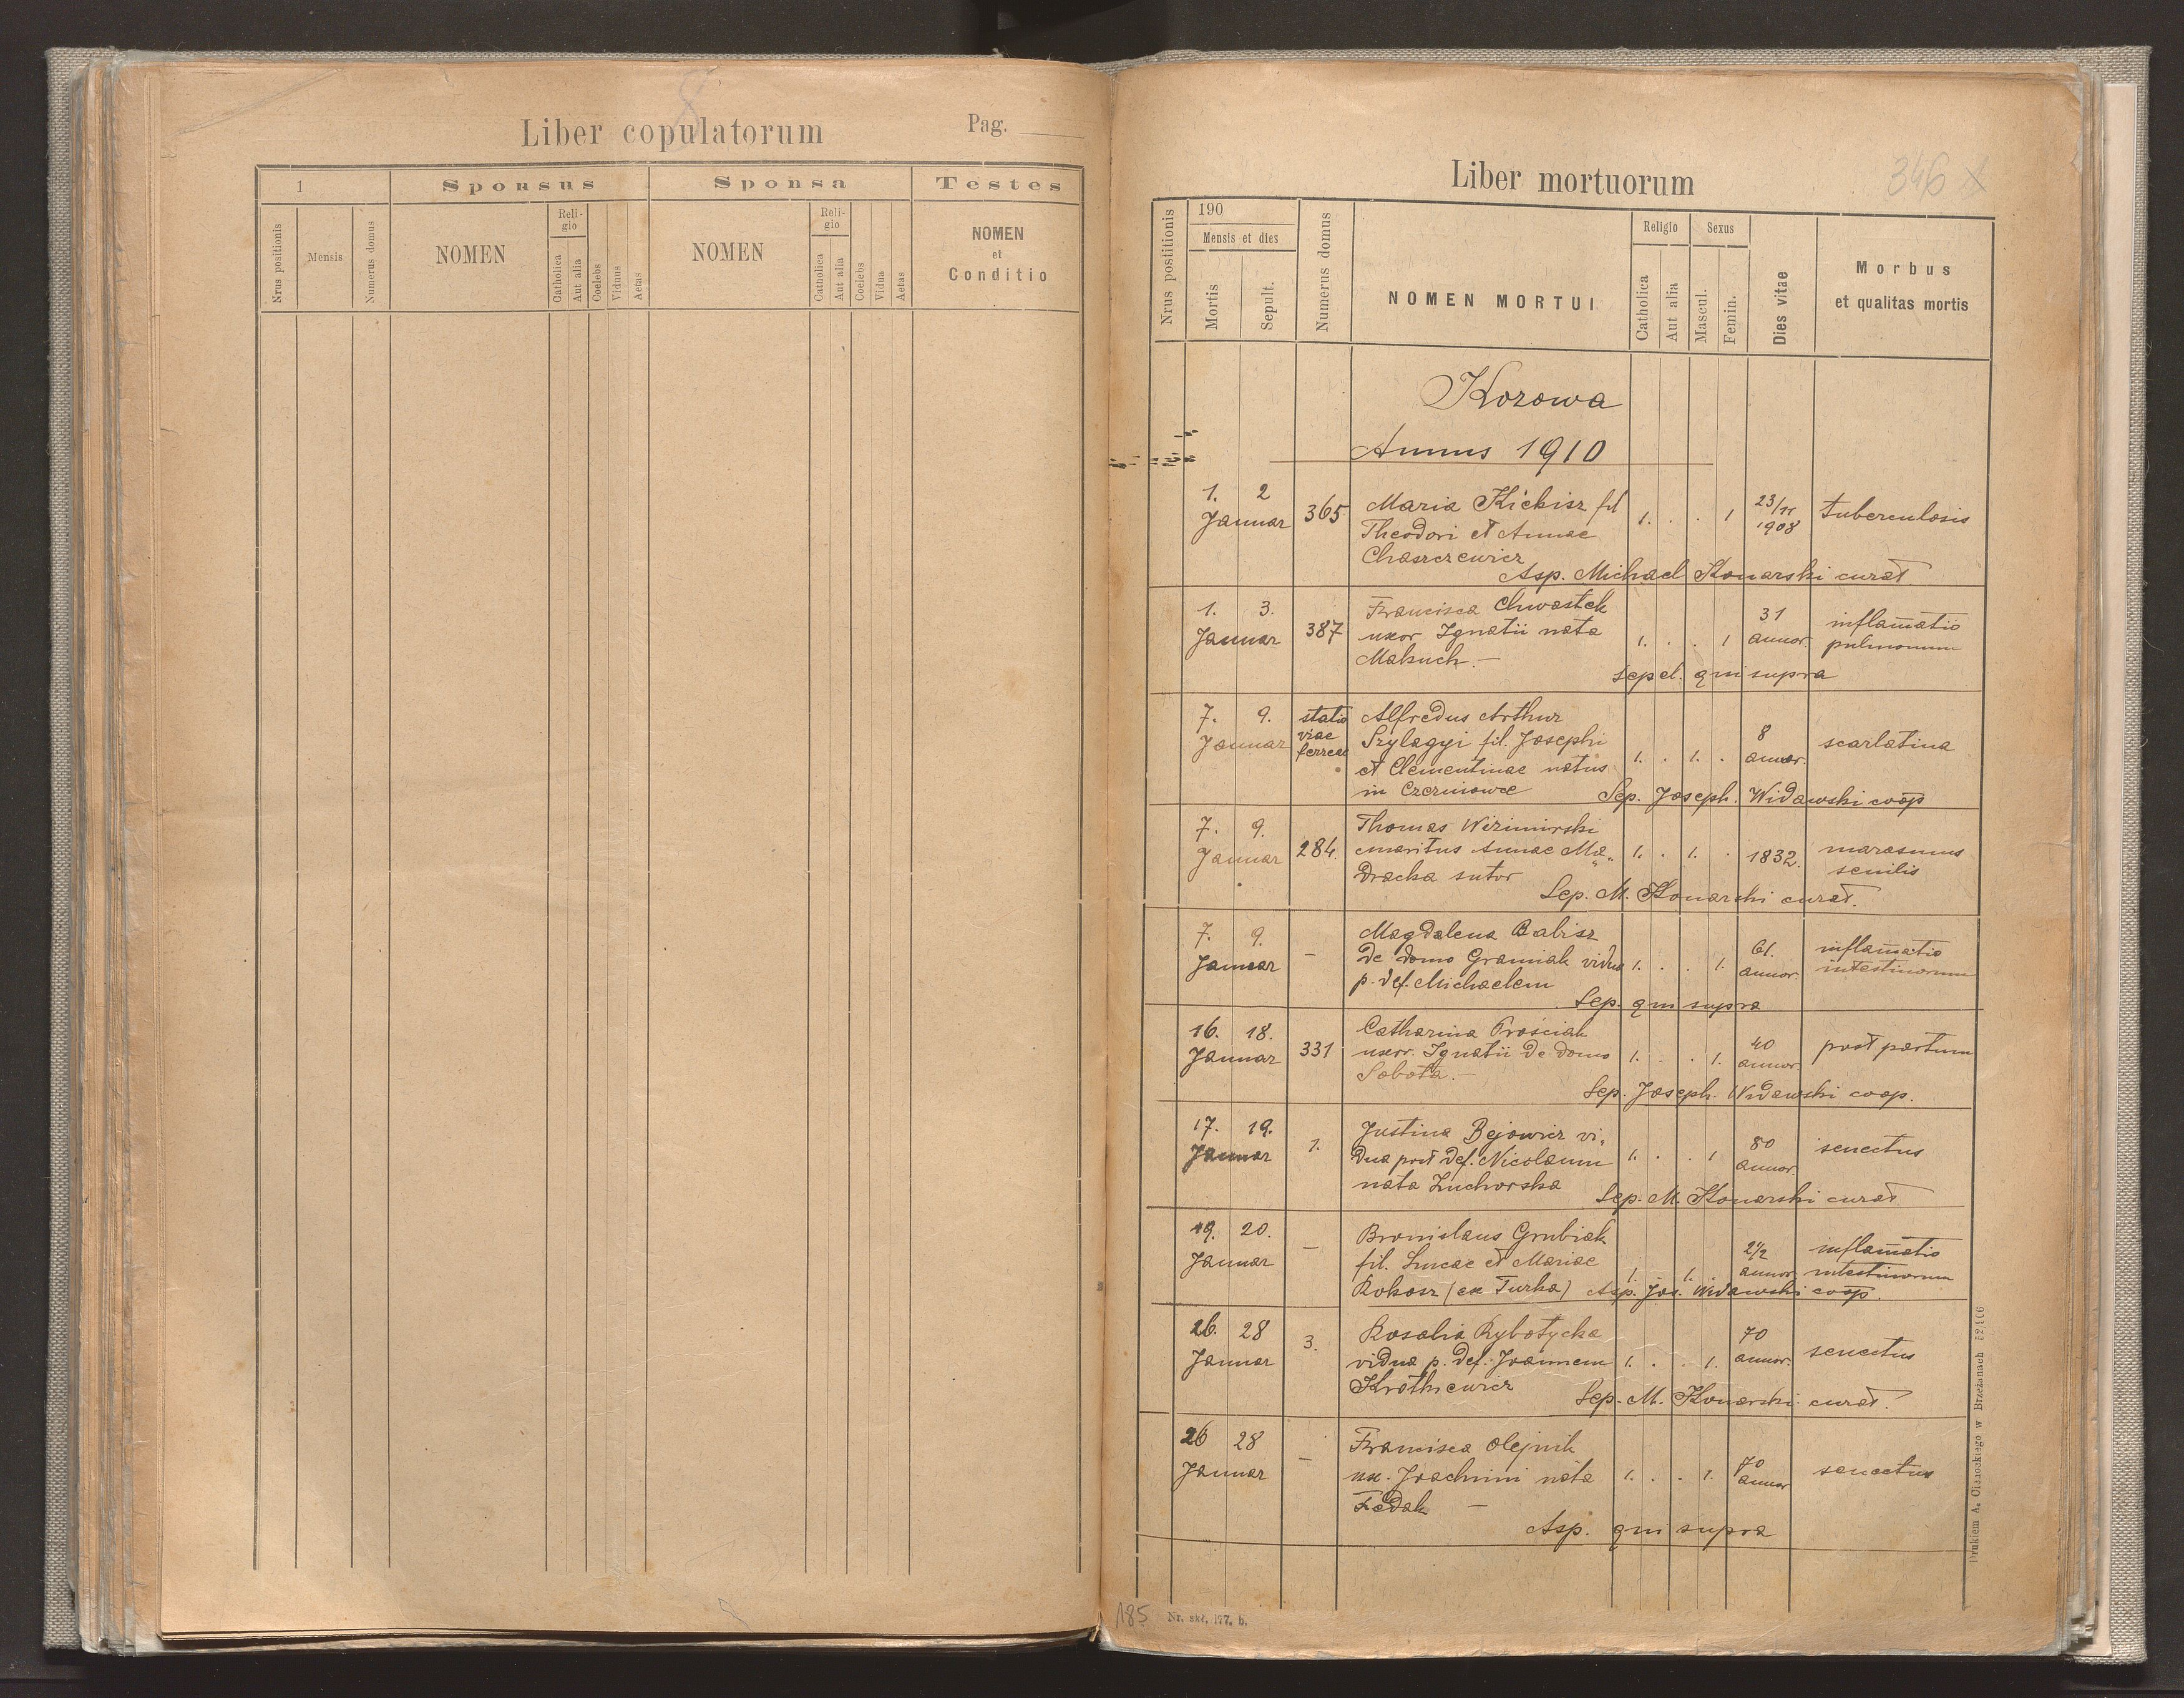 Liber copulatorum
Pag.
1
Sponsus
Sponsa
Testes
Nrus positionis
Mensis
Numerus domus
NOMEN
Religio
Catholica
Aut alia
Coelebs
Viduus
Aetas
NOMEN
Religio
Catholica
Aut alia
Coelebs
Vidua
Aetas
NOMEN
et
Conditio
Liber mortuorum
346
Nrus postitionis
190
Mensis et dies
Mortis
Sepult.
Numerus domus
NOMEN MORTUI
Religio
Catholica
Aut alia
Sexus
Mascul.
Femin.
Dies vitae
Morbus
et qualitas mortis
Kozowa
Annus 1910
1. 2 Januar 365 Maria Kicbisz fil 1. . . 1 23/11 1908 tuberculosis
Theodori et Annae
Chaszczewicz
Asp. Michael Konarski curat
1. 3. Januar 387 Francisca Chwastek 1. . . 1 31 annor. inflamatio
uxor Ignatii nata pulmonum
Makuch.—
Sepel. qui supra
7. 9. Januar statio viae ferreae Alfredus Arthur
Szylagyi fil. Josephi 1. . 1. . 8 annor. scarlatina
et Clementinae natus
in Czerniowce
Sep. Joseph. Widawski coop
7. 9. Januar 284. Thomas Wizimirski
maritus Annae Ma„ 1. . 1. . 1832. marasmus
dracka sutor senilis
Sep. M. Konarski curat.
7. 9. Januar – Magdalena Babisz
de domo Graniak vidua 1. . . 1. 61. annor. inflamatio
p. def. Michaelem intestinorum
Sep. qui supra
16. 18. Januar 331 Catharina Prościak
uxor. Ignatii de domo 1. . . 1. 40 annor. post partum
Sobota.—
Sep. Joseph. Widawski coop.
17. 19. Januar 1. Justina Bejowicz vi„
dua post def. Nicolaum 1. . . 1 80 annor. senectus
nata Zuchorska
Sep. M. Konarski curat
19. 20. Januar – Bronislaus Grubiak
fil. Lucae et Mariae 1. . 1. . 2 1/2 annor. inflamatio
Kokosz (ex Turka) intestinorum
Asp. Jos. Widawski coop.
26. 28 Januar 3. Rosalia Rybotycka
vidua p. def. Joannem 1. . . 1. 70 annor. senectus
Krothiewicz
Sep. M. Konarski curat.
26 28 Januar – Francisca Olejnik
ux. Joachimi nata 1. . . 1. 70 annor senectus
Fedak —
Asp. qui supra
185
Nr. skł. 177. b.
Drukiem A. Cienockiego w Brzeżanach